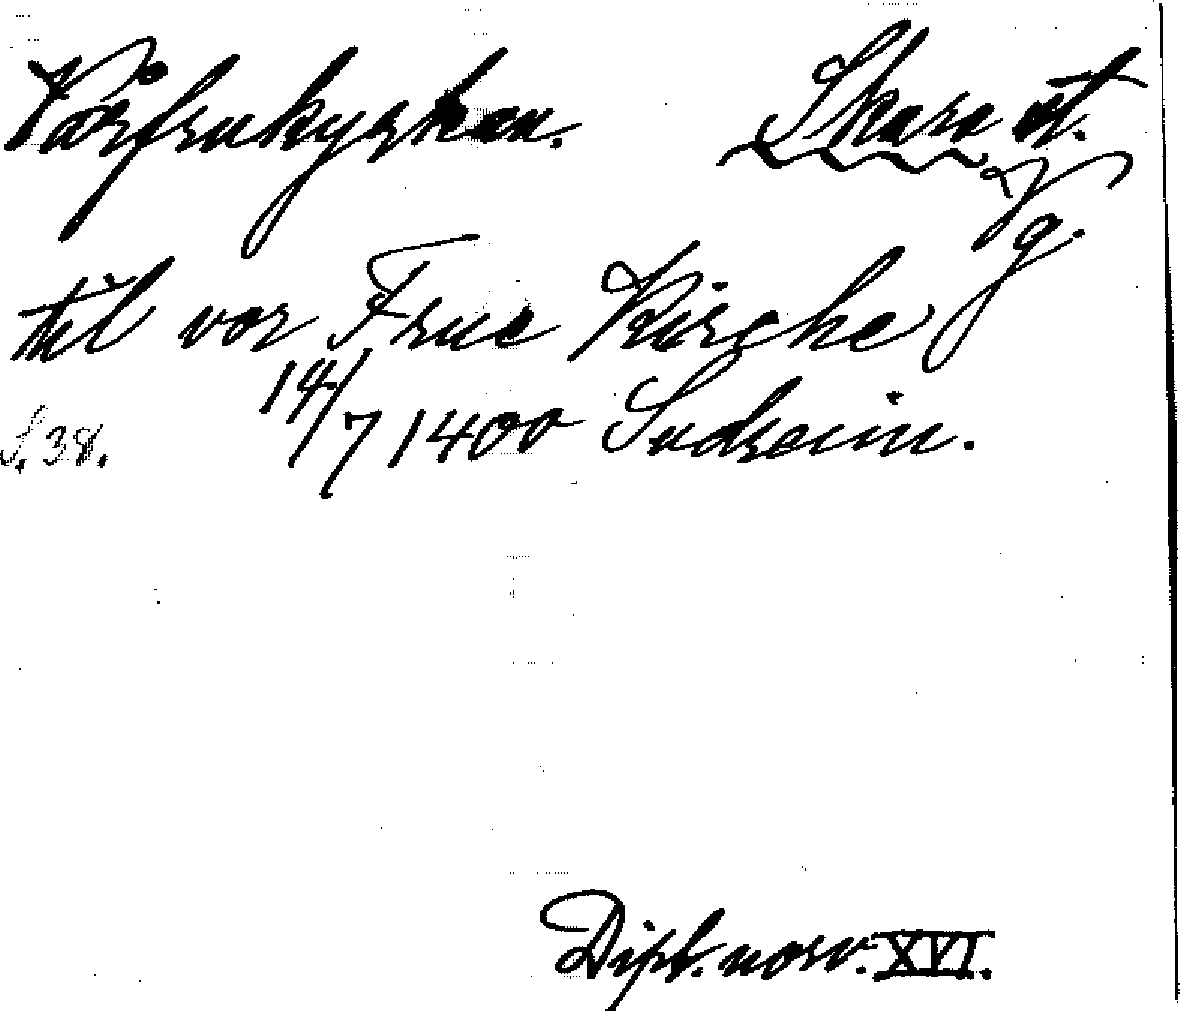 Vårfrukyrkan. Skara st.
Vg.
til vor Frue Kirche
14/7 1400 Sudreim.
S. 38.
Dipl. norv. XVI.